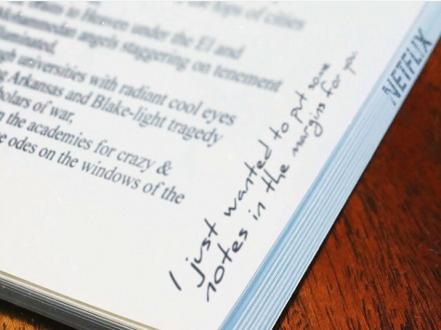 tops of cities
to Heaven under the El and
Mohammedan angels staggering on tenement
illuminated,
universities with radiant cool eyes
Arkansas and Blake-light tragedy
of war,
the academies for crazy &
odes on the windows of the
I just wanted to put some
notes in the margins for you
NETFLIX